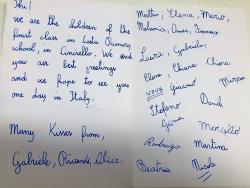 Hi!
we are the children of the
fourst class in
school, in Cinisello. We send
you our best greetings
and we hope to see you
one day in Italy.
Many Kisses from,
Gabriele, Riccardo, Alice,
Matteo, Elena, Marco,
Omar,
Laura, Gabriele,
Elena, Chiara, Chiara
Giovanni
Stefano
David
Marcello
Rodrigo Martina
Beatrice Nicole